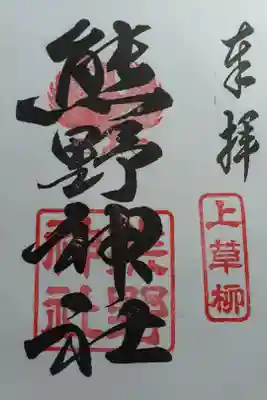 奉拝
上草柳
熊野神社
熊野
神社